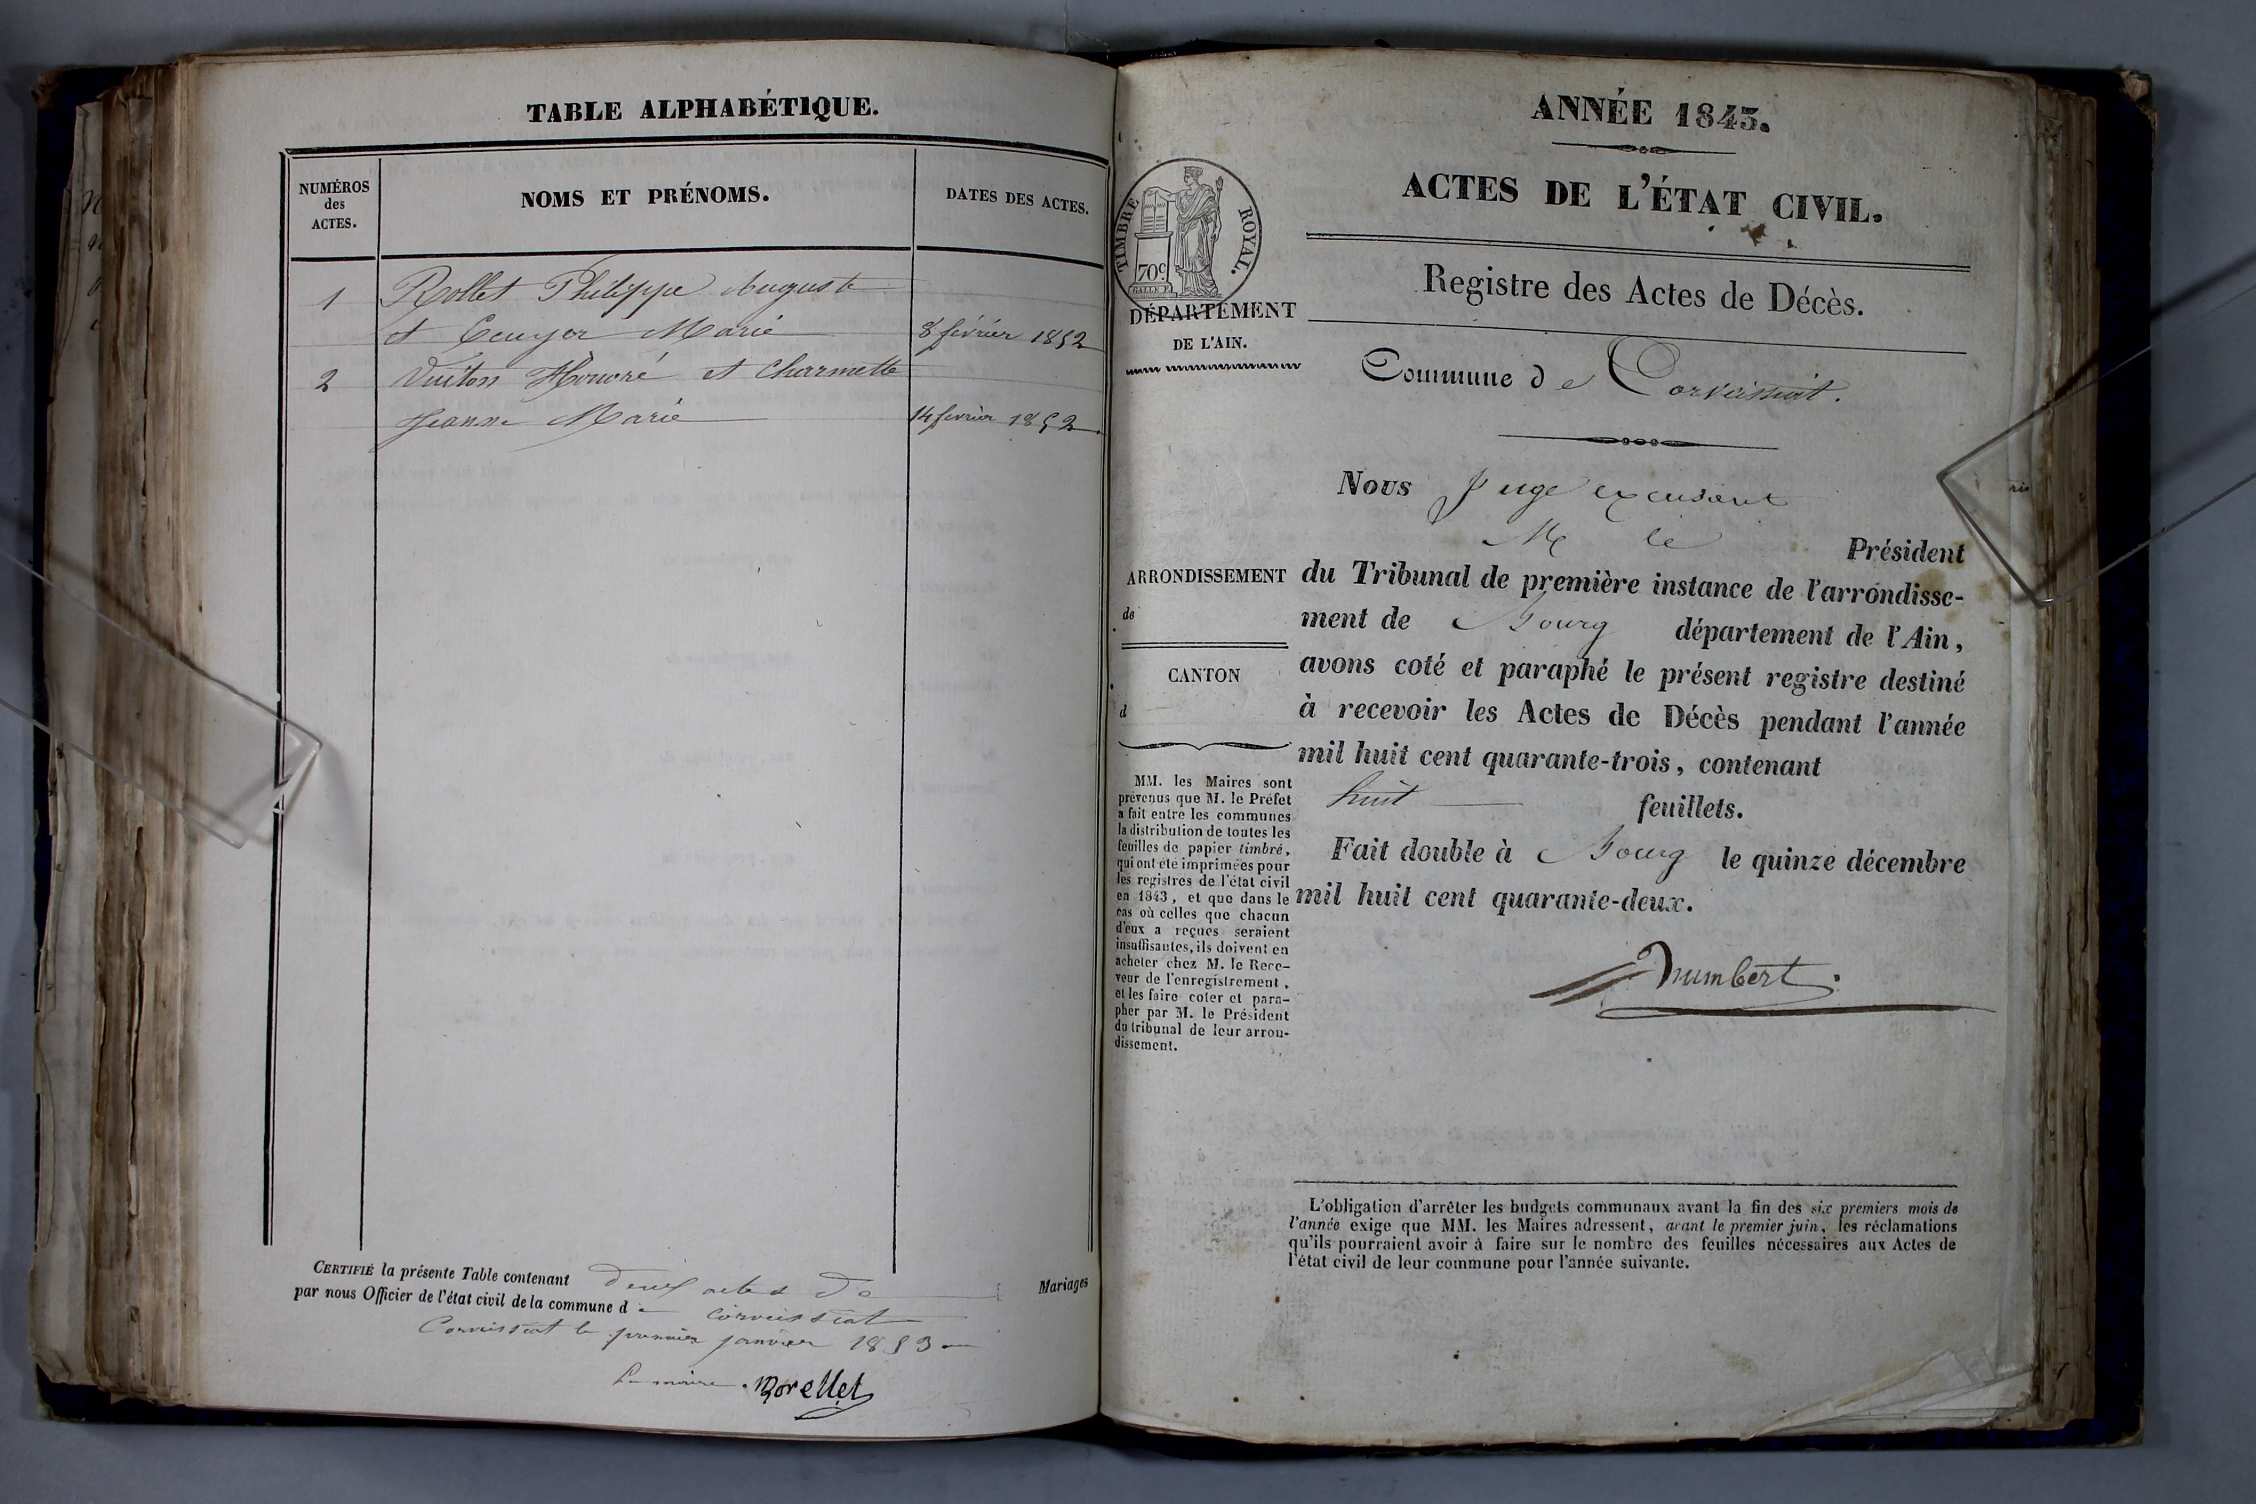 TABLE ALPHABÉTIQUE.
NUMÉROS
des
ACTES.
NOMS ET PRÉNOMS.
DATES DES ACTES.
1 Rollet Philippe Auguste
et Ecuyer Marie 8 février 1852
2 Vuiton Honoré et Charmette
Jeanne Marie 14 février 1852
CERTIFIÉ la présente Table contenant deux actes de Mariages
par nous Officier de l'état civil de la commune de Corveissiat
Corveissiat le premier janvier 1853
Le maire. Morellet
ANNÉE 1843.
ACTES DE L'ÉTAT CIVIL.
TIMBRE ROYAL.
70c
DÉPARTEMENT
DE L'AIN.
Registre des Actes de Décès.
Commune de Corveissiat.
Nous Juge excusant
M le Président
ARRONDISSEMENT
de
CANTON
d
du Tribunal de première instance de l'arrondisse-
ment de Bourg département de l'Ain,
avons coté et paraphé le présent registre destiné
à recevoir les Actes de Décès pendant l'année
mil huit cent quarante-trois, contenant
huit feuillets.
Fait double à Bourg le quinze décembre
mil huit cent quarante-deux.
humbert
MM. les Maires sont
prévenus que M. le Préfet
a fait entre les communes
la distribution de toutes les
feuilles de papier timbré,
qui ont été imprimées pour
les registres de l'état civil
en 1843, et que dans le
cas où celles que chacun
d'eux a reçues seraient
insuffisantes, ils doivent en
acheter chez M. le Rece-
veur de l'enregistrement,
et les faire coter et para-
pher par M. le Président
du tribunal de leur arron-
dissement.
L'obligation d'arrêter les budgets communaux avant la fin des six premiers mois de
l'année exige que MM. les Maires adressent, avant le premier juin, les réclamations
qu'ils pourraient avoir à faire sur le nombre des feuilles nécessaires aux Actes de
l'état civil de leur commune pour l'année suivante.